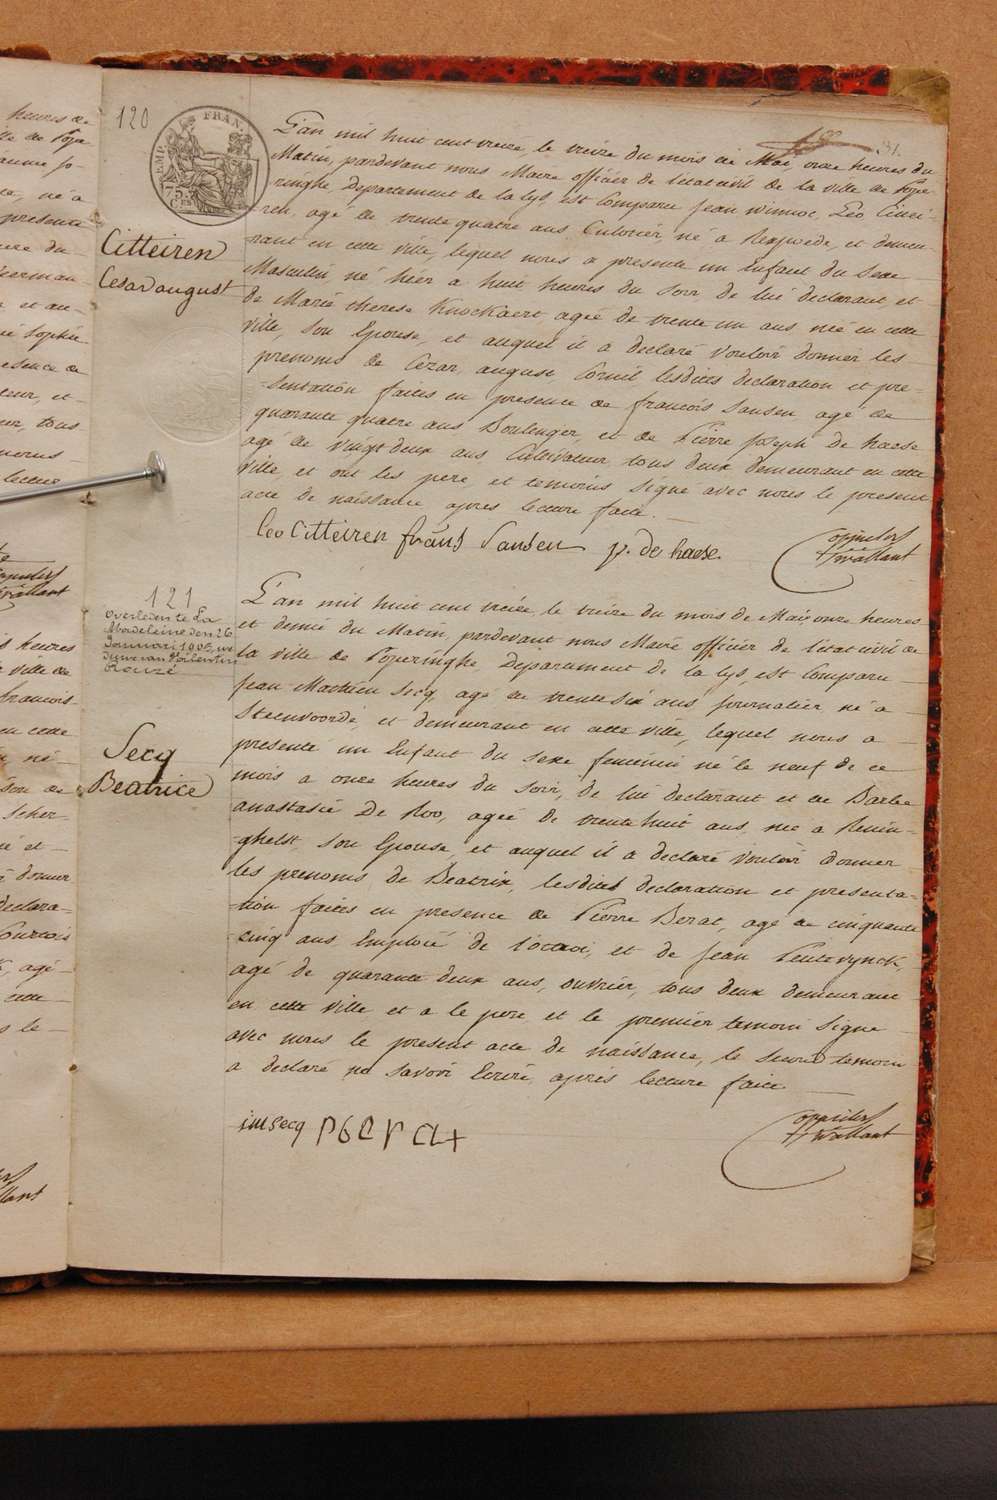 120
EMP. FRAN.
31.
Citteiren
Cesar august
L'an mil huit cent treize, le treize du mois de Mai, onze heures du
Matin, pardevant nous Maire officier de l'état civil de la ville de Pope
ringhe, Departement de la Lys, est Comparu Jean Winnoc, Leo Cittei-
ren, agé de trente quatre ans Culotier, né a Rexpoede, et demeu-
rant en cette ville, lequel nous a presenté un Enfant du Sexe
Masculin, né hier a huit heures du Soir de lui declarant, et
de Marie therese Knockaert, agée de trente un ans née en cette
ville, Son Epouse, et auquel il a declaré vouloir donner les
prenoms de Cezar, august, Corneil lesdites declaration et pre-
-sentation faites en presence de francois Sansen agé de
quarante quatre ans Boulenger, et de Pierre Joseph de haese
agé de vingt deux ans Cultivateur, tous deux demeurant en cette
ville, et ont les pere, et temoins Signé avec nous le present
acte de naissance apres lecture faite.
leo Citteiren frans Sansen p. de haese
121
overleden te La
Madeleine den 26
Januari 1905, we
duwe van Valentin
Crouzé
Secq
Beatrice
L'an mil huit cent treize le treize du mois de Mai, onze heures
et demie du Matin, pardevant nous Maire officier de l'état civil de
la ville de Poperinghe, Departement de la Lys, est Comparu
Jean Mathieu Secq, agé de trente Six ans Journalier né a
Steenvoorde, et demeurant en cette ville, lequel nous a
presenté un Enfant du sexe feminin né le neuf de ce
mois a onze heures du soir, de lui declarant et de Barbe
anastasie De Roo, agée de trente huit ans, née a Renin-
-ghelst, Son Epouse, et auquel il a declaré vouloir donner
les prenoms de Beatrix, lesdites declaration et presenta-
-tion faites en presence de Pierre Berat, agé de cinquante
cinq ans Emploié de l'octroi, et de Jean
agé de quarante deux ans, ouvrier, tous deux demeurant
en cette ville et a le pere et le premier temoin Signé
avec nous le present acte de naissance, le Second temoin
a declaré ne savoir Ecrire, après lecture faite
jm secq